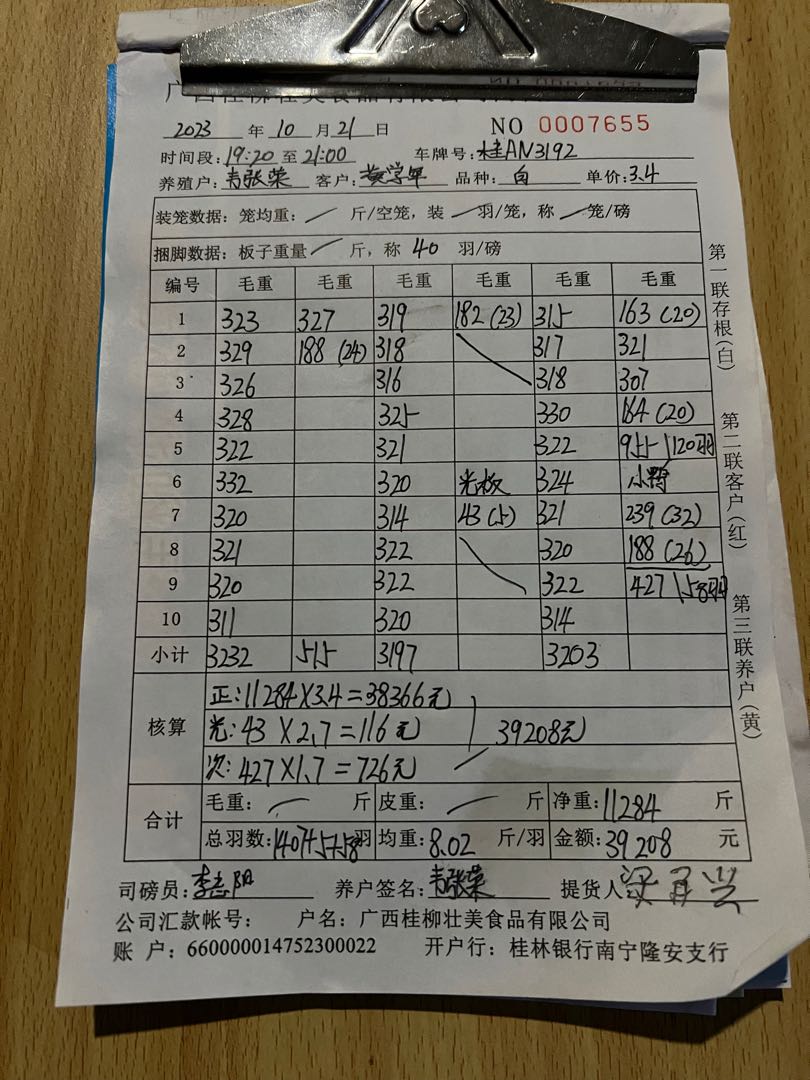 2023 年 10 月 21 日 NO 0007655
时间段: 19:20 至 21:00 车牌号: 桂AN3192
养殖户: 韦张荣 客户: 黄学军 品种: 白 单价: 3.4
装笼数据: 笼均重: / 斤/空笼, 装 / 羽/笼, 称 / 笼/磅
捆脚数据: 板子重量 / 斤, 称 40 羽/磅
编号 毛重 毛重 毛重 毛重 毛重 毛重
1 323 327 319 182 (23) 315 163 (20)
2 329 188 (24) 318 317 321
3 326 316 318 307
4 328 325 330 164 (20)
5 322 321 322 955 \120羽
6 332 320 光板 324 小鸭
7 320 314 43 (5) 321 239 (32)
8 321 322 320 188 (26)
9 320 322 322 427 \58羽
10 311 320 314
小计 3232 515 3197 3203
核算
正: 11284 X 3.4 = 38366元
光: 43 X 2.7 = 116元
次: 427 X 1.7 = 726元
39208元
合计
毛重: / 斤 皮重: / 斤 净重: 11284 斤
总羽数: 1407+5+58羽 均重: 8.02 斤/羽 金额: 39208 元
司磅员: 李志阳 养户签名: 韦张荣 提货人:
公司汇款帐号: 户名: 广西桂柳壮美食品有限公司
账 户: 660000014752300022 开户行: 桂林银行南宁隆安支行
第一联存根(白)
第二联客户(红)
第三联养户(黄)